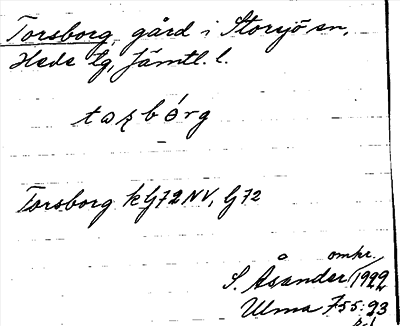 Torsborg, gård i Storsjö sn,
Hede tg, Jämtl. l.
Torsborg k G72NV, G72
omkr.
S. Åsander 1922
Ulma 755:23